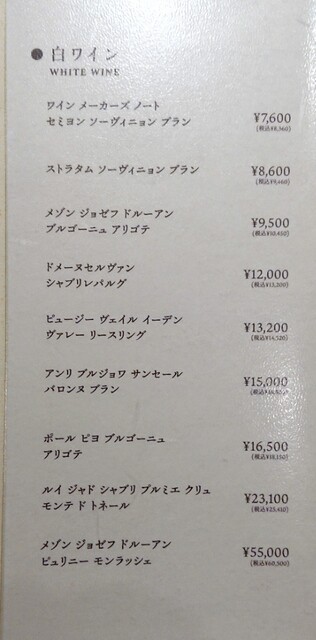 ● 白ワイン
WHITE WINE
ワイン メーカーズ ノート
セミヨン ソーヴィニョン ブラン
¥7,600
(税込¥8,360)
ストラタム ソーヴィニョン ブラン
¥8,600
(税込¥9,460)
メゾン ジョゼフ ドルーアン
ブルゴーニュ アリゴテ
¥9,500
(税込¥10,450)
ドメーヌセルヴァン
シャブリレパルグ
¥12,000
(税込¥13,200)
ピュージー ヴェイル イーデン
ヴァレー リースリング
¥13,200
(税込¥14,520)
アンリ ブルジョワ サンセール
バロンヌ ブラン
¥15,000
(税込¥16,500)
ポール ピヨ ブルゴーニュ
アリゴテ
¥16,500
(税込¥18,150)
ルイ ジャド シャブリ プルミエ クリュ
モンテ ド トネール
¥23,100
(税込¥25,410)
メゾン ジョゼフ ドルーアン
ピュリニー モンラッシェ
¥55,000
(税込¥60,500)